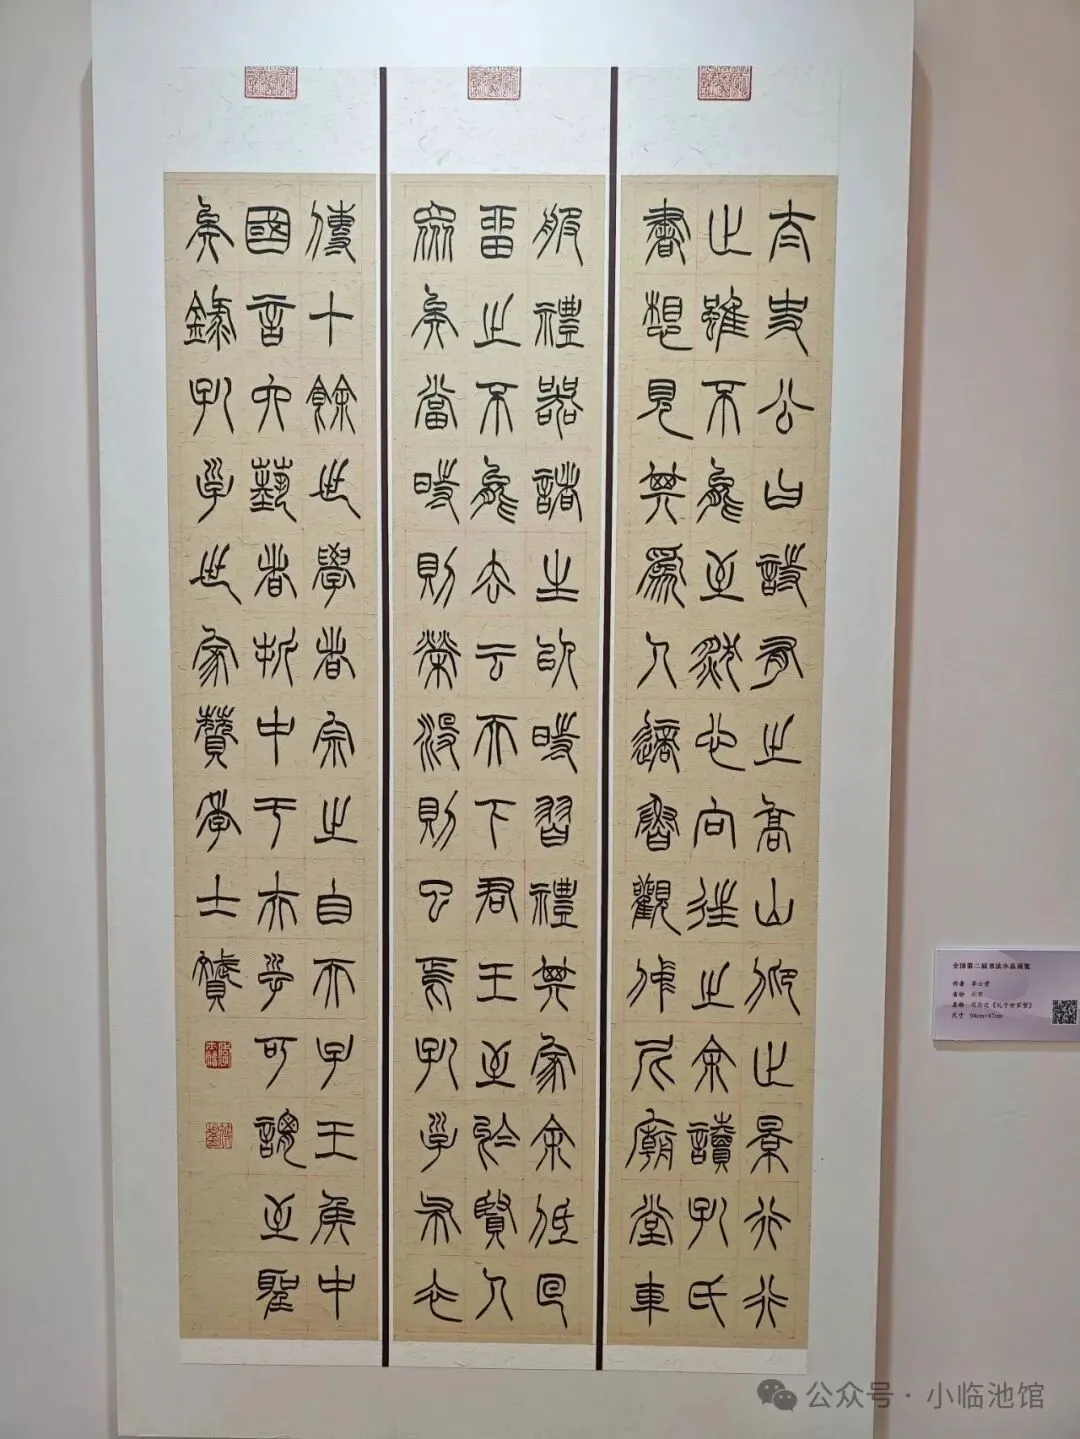 太史公曰詩有之高山仰止景行行
止雖不能至然心向往之余讀孔氏
書想見其為人適魯觀仲尼廟堂車
服禮器諸生以時習禮其家余低回
留之不能去云天下君王至於賢人
眾矣當時則榮沒則已焉孔子布衣
傳十餘世學者宗之自天子王侯中
國言六藝者折中于夫子可謂至聖
矣錄孔子世家贊李士贇
全国第二届书法小品展览
作者 李士赟
省份 北京
名称 司马迁《孔子世家赞》
尺寸 94cm×47cm
公众号·小临池馆